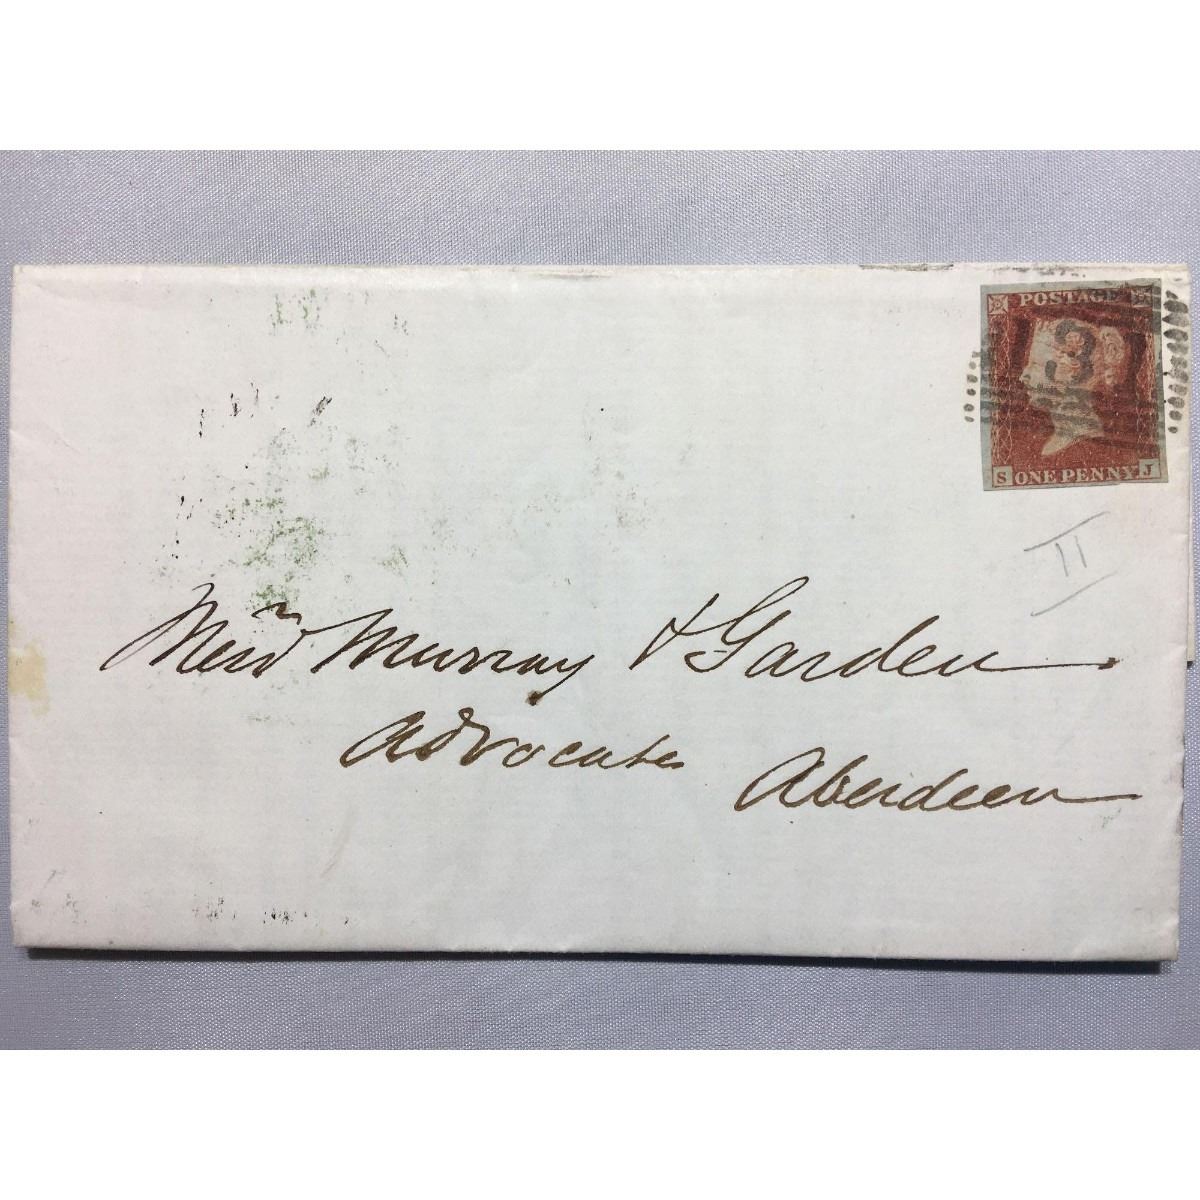 POSTAGE
3
S ONE PENNY J
II
Messrs Murray & Garden
Advocates
Aberdeen